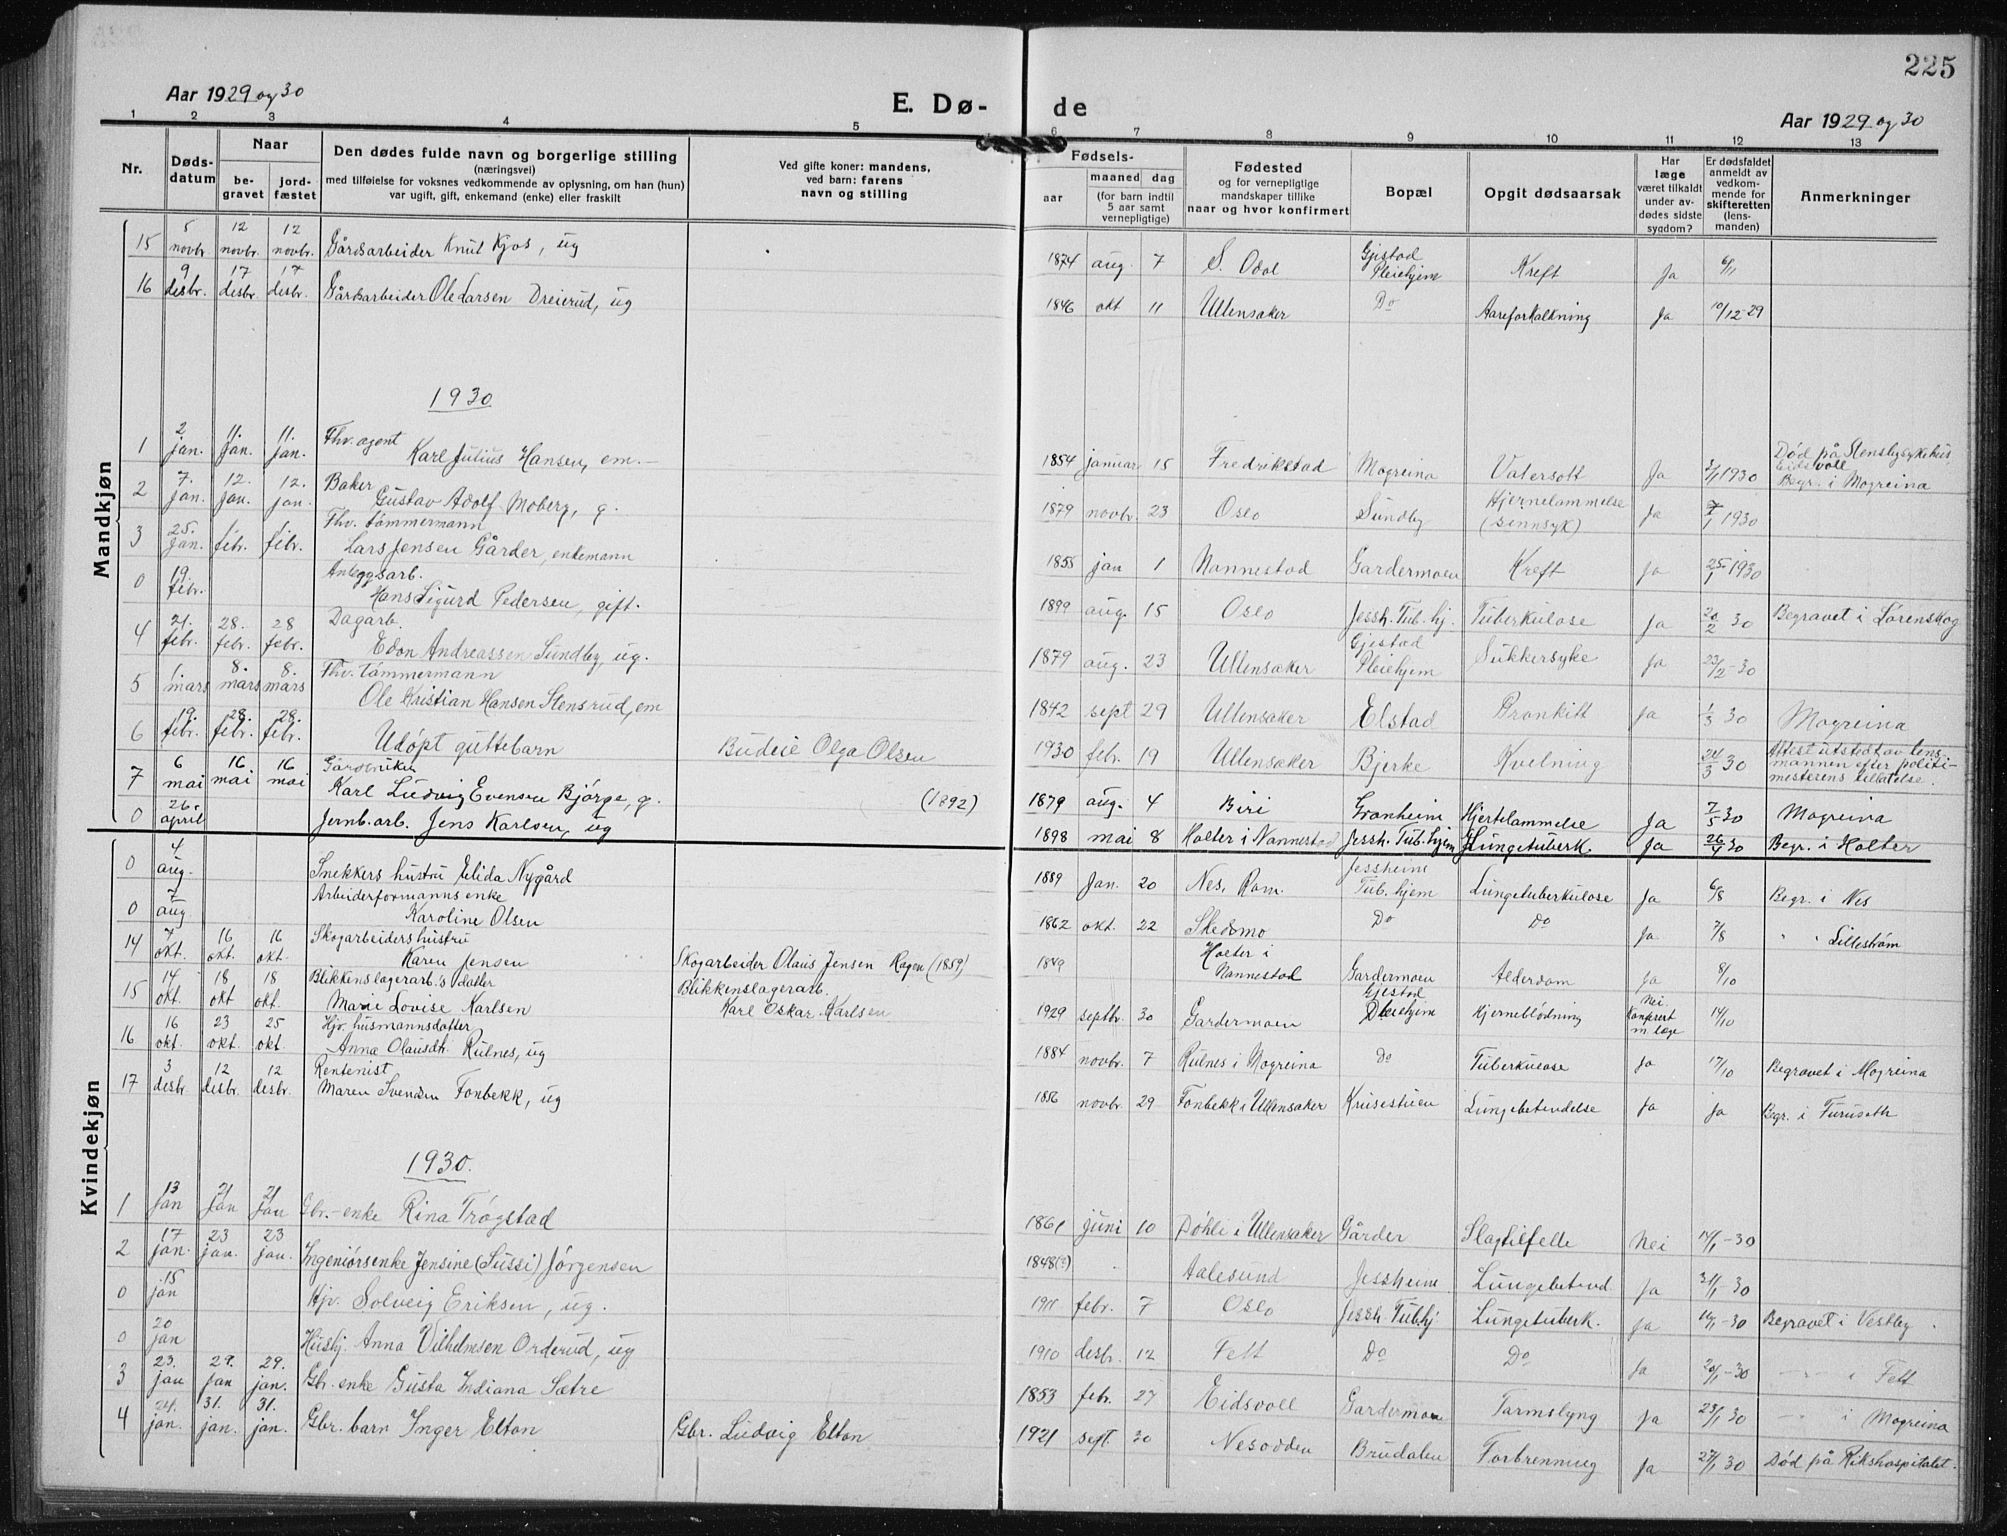 225
Aar 1929 og 30
E. Dø- de
Aar 1929 og 30
1 2 3 4 5 6 7 8 9 10 11 12 13
Nr. | Døds-datum | Naar begravet | jordfæstet | Den dødes fulde navn og borgerlige stilling (næringsvei) med tilføielse for voksnes vedkommende av oplysning, om han (hun) var ugift, gift, enkemand (enke) eller fraskilt | Ved gifte koner: mandens, ved barn: farens navn og stilling | Fødsels- aar | maaned dag (for barn indtil 5 aar samt vernepligtige) | Fødested og for vernepligtige mandskaper tillike naar og hvor konfirmert | Bopæl | Opgit dødsaarsak | Har læge været tilkaldt under avdødes sidste sygdom? | Er dødsfaldet anmeldt av vedkommende for skifteretten (lensmanden) | Anmerkninger
Mandkjøn
15 | 5 novbr | 12 novbr. | 12 novbr. | Gårdsarbeider Knut Kjos, ug | | 1874 | aug. 7 | S. Odal | Gjestad Pleiehjem | Kreft | Ja | 6/11
16 | 9 desbr. | 17 desbr | 17 desbr. | Gårdsarbeider Ole Larsen Dreierud, ug | | 1846 | okt 11 | Ullensaker | Do | Aareforkalkning | Ja | 10/12-29
1930
1 | 2 jan. | 11. jan. | 11. jan. | Fhv. agent Karl Julius Hansen, em. | | 1854 | januar 15 | Fredrikstad | Mogreina | Vatersott | Ja | 3/1 1930 | Død på Stensbysykehus Eidsvoll Begr. i Mogreina
2 | 7. jan. | 12. jan. | 12. jan. | Baker Gustav Adolf Moberg, g. | | 1879 | novbr. 23 | Oslo | Sundby | Hjernelammelse (sinnsyk) | Ja | 7/1 1930
3 | 25. jan. | febr. | febr. | Fhv. tømmermann Lars Jensen Gårder, enkemann | | 1855 | jan 1 | Nannestad | Gardermoen | Kreft | Ja | 25/1 1930
0 | 19 febr. | | | Anleggsarb. Hans Sigurd Pedersen, gift. | | 1899 | aug. 15 | Oslo | Jessh. Tub. hj. | Tuberkulose | Ja | 20/2 30 | Begravet i Lørenskog
4 | 21. febr. | 28. febr. | 28 febr. | Dagarb. Edon Andreassen Sundby, ug. | | 1879 | aug. 23 | Ullensaker | Gjestad Pleiehjem | Sukkersyke | Ja | 23/2-30
5 | 1 mars | 8. mars | 8. mars | Fhv. tømmermann Ole Kristian Hansen Stensrud, em | | 1842 | sept 29 | Ullensaker | Elstad | Bronkitt | Ja | 1/3 30 | Mogreina
6 | 19. febr. | 28. febr. | 28. febr. | Udøpt guttebarn | Budeie Olga Olsen | 1930 | febr. 19 | Ullensaker | Bjerke | Kvelning | | 24/3 30 | Attest utstedt av lensmannen efter politimesterens tillatelse.
7 | 6 mai | 16 mai | 16 mai | Gårdbruker Karl Ludvig Evensen Bjørge, g. | (1892) | 1879 | aug. 4 | Biri | Granheim | Hjertelammelse | Ja | 7/5 30 | Mogreina
0 | 26. april | | | Jernb. arb. Jens Karlsen, ug | | 1898 | mai 8 | Holter i Nannestad | Jessh. Tub. hjem | Lungetuberk. | Ja | 26/4 30 | Begr. i Holter
Kvindekjøn
0 | 4 aug. | | | Snekkers hustru Elida Nygård | | 1889 | Jan. 20 | Nes, Rom. | Jessheim Tub. hjem | Lungetuberkulose | Ja | 6/8 | Begr. i Nes
0 | 7 aug | | | Arbeiderformanns enke Karoline Olsen | | 1862 | okt. 22 | Skedsmo | Do | Do | Ja | 7/8 | " " Lillestrøm
14 | 7 okt. | 16 okt. | 16 okt. | Skogarbeiders hustru Karen Jensen | Skogarbeider Olaus Jensen Ragen (1859) | 1849 | | Holter i Nannestad | Gardermoen | Alderdom | Ja | 8/10
15 | 14 okt. | 18 okt | 18 okt. | Blikkenslagerarb.'s datter Marie Lovise Karlsen | Blikkenslagerarb. Karl Oskar Karlsen | 1929 | septbr. 30 | Gardermoen | Gjestad Pleiehjem | Hjerneblødning | Nei. Konferert m. læge | 14/10
16 | 16 okt. | 23 okt. | 25 okt. | Hjv. husmannsdatter Anna Olausdh. Rulnes, ug | | 1884 | novbr. 7 | Rulnes i Mogreina | Do | Tuberkulose | Ja | 17/10 | Begravet i Mogreina
17 | 3 desbr | 12 desbr. | 12 desbr. | Rentenist Maren Svendsen Fonbekk, ug | | 1856 | novbr. 29 | Fonbekk i Ullensaker | Krusestuen | Lungebetendelse | Ja | Ja | Begr. i Furuseth
1930.
1 | 13 jan | 21 jan | 21 jan | Gbr.-enke Rina Trøgstad | | 1861 | juni 10 | Døhli i Ullensaker | Gårder | Slagtilfelle | Nei | 14/1-30
2 | 17 jan. | 23 jan. | 23 jan. | Ingeniørsenke Jensine (Sussi) Jørgensen | | 1848(?) | | Aalesund | Jessheim | Lungebetend. | Ja | 31/1-30
0 | 15 jan | | | Hjv. Solveig Eriksen, ug. | | 1911 | febr. 7 | Oslo | Jessh. Tub.hj. | Lungetuberk. | Ja | 16/1-30 | Begravet i Vestby.
0 | 20 jan | | | Hushj. Anna Vilhelmsen Orderud, ug | | 1910 | desbr. 12 | Fett | Do | Do | Ja | 20/1-30 | -"- i Fett
3 | 23. jan | 29. jan | 29. jan. | Gbr. enke Gusta Indiana Sætre | | 1853 | febr. 27 | Eidsvoll | Gardermoen | Tarmslyng | Ja | 23/1 30 | -"- i Mogreina
4 | 24. jan. | 31. jan. | 31. jan. | Gbr. barn Inger Elton | Gbr. Ludvig Elton | 1921 | sept. 30 | Nesodden | Brudalen | Forbrenning | Ja | 27/1 30 | Død på Rikshospitalet.